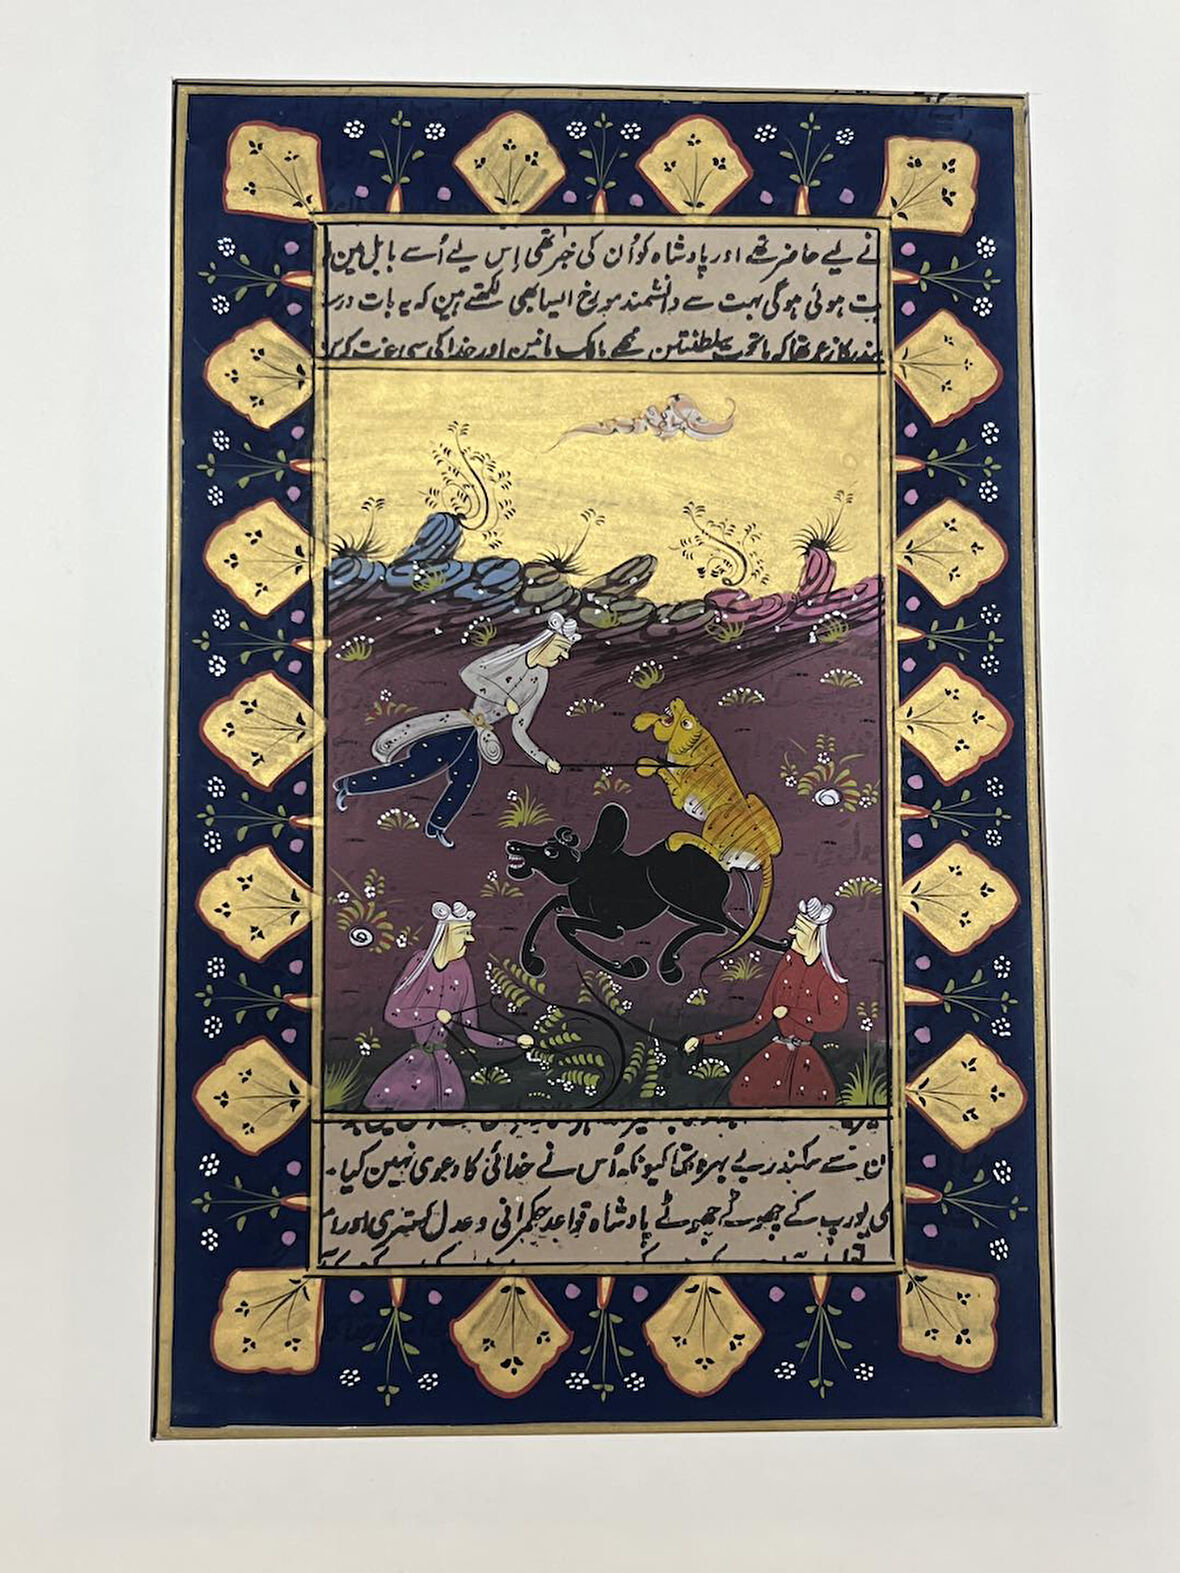 نے لیے حاضر تھے اور پادشاہ کو اُن کی خبر تھی اِس لیے اُسے بابل مین
ت ہوئی ہوگی بہت سے دانشمند مورخ ایسا بھی لکھتے ہین کہ یہ بات در
کا زعم تھا کہ ماتحت سلطنتین مجھے مالک مانین اور خدا کی سی عزت کر
سے سکندر بے بہرہ تھا کیونکہ اُس نے خدائی کا دعوی نہین کیا۔
کی یورپ کے چھوٹے چھوٹے پادشاہ قواعد حکمرانی و عدل گستری اور